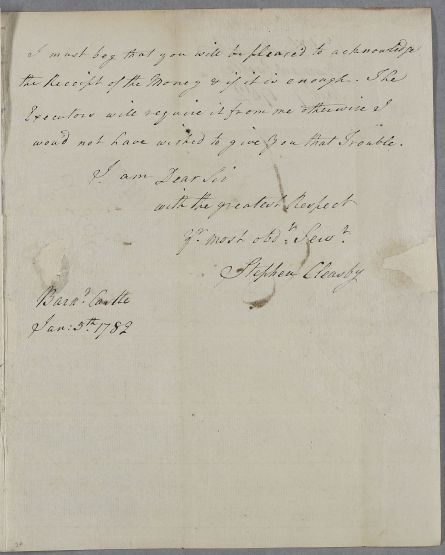 I must beg that you will be pleased to acknowledge
the Receipt of the Money & if it is enough. The
Executors will require it from me otherwise I
woud not have wished to give you that Trouble.
I am Dear Sir
with the greatest Respect
Yr. most obdt. Servt.
Stephen Cleasby
Barnd. Castle
Jan: 5th. 1782